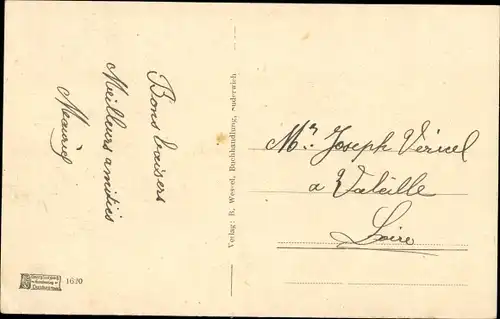 Bons baisers
Meilleurs amitiés
Maurice
Verlag: B. Wessel, Buchhandlung, Suderwich
Mr. Joseph Véricel
a Valeille
Loire
1620